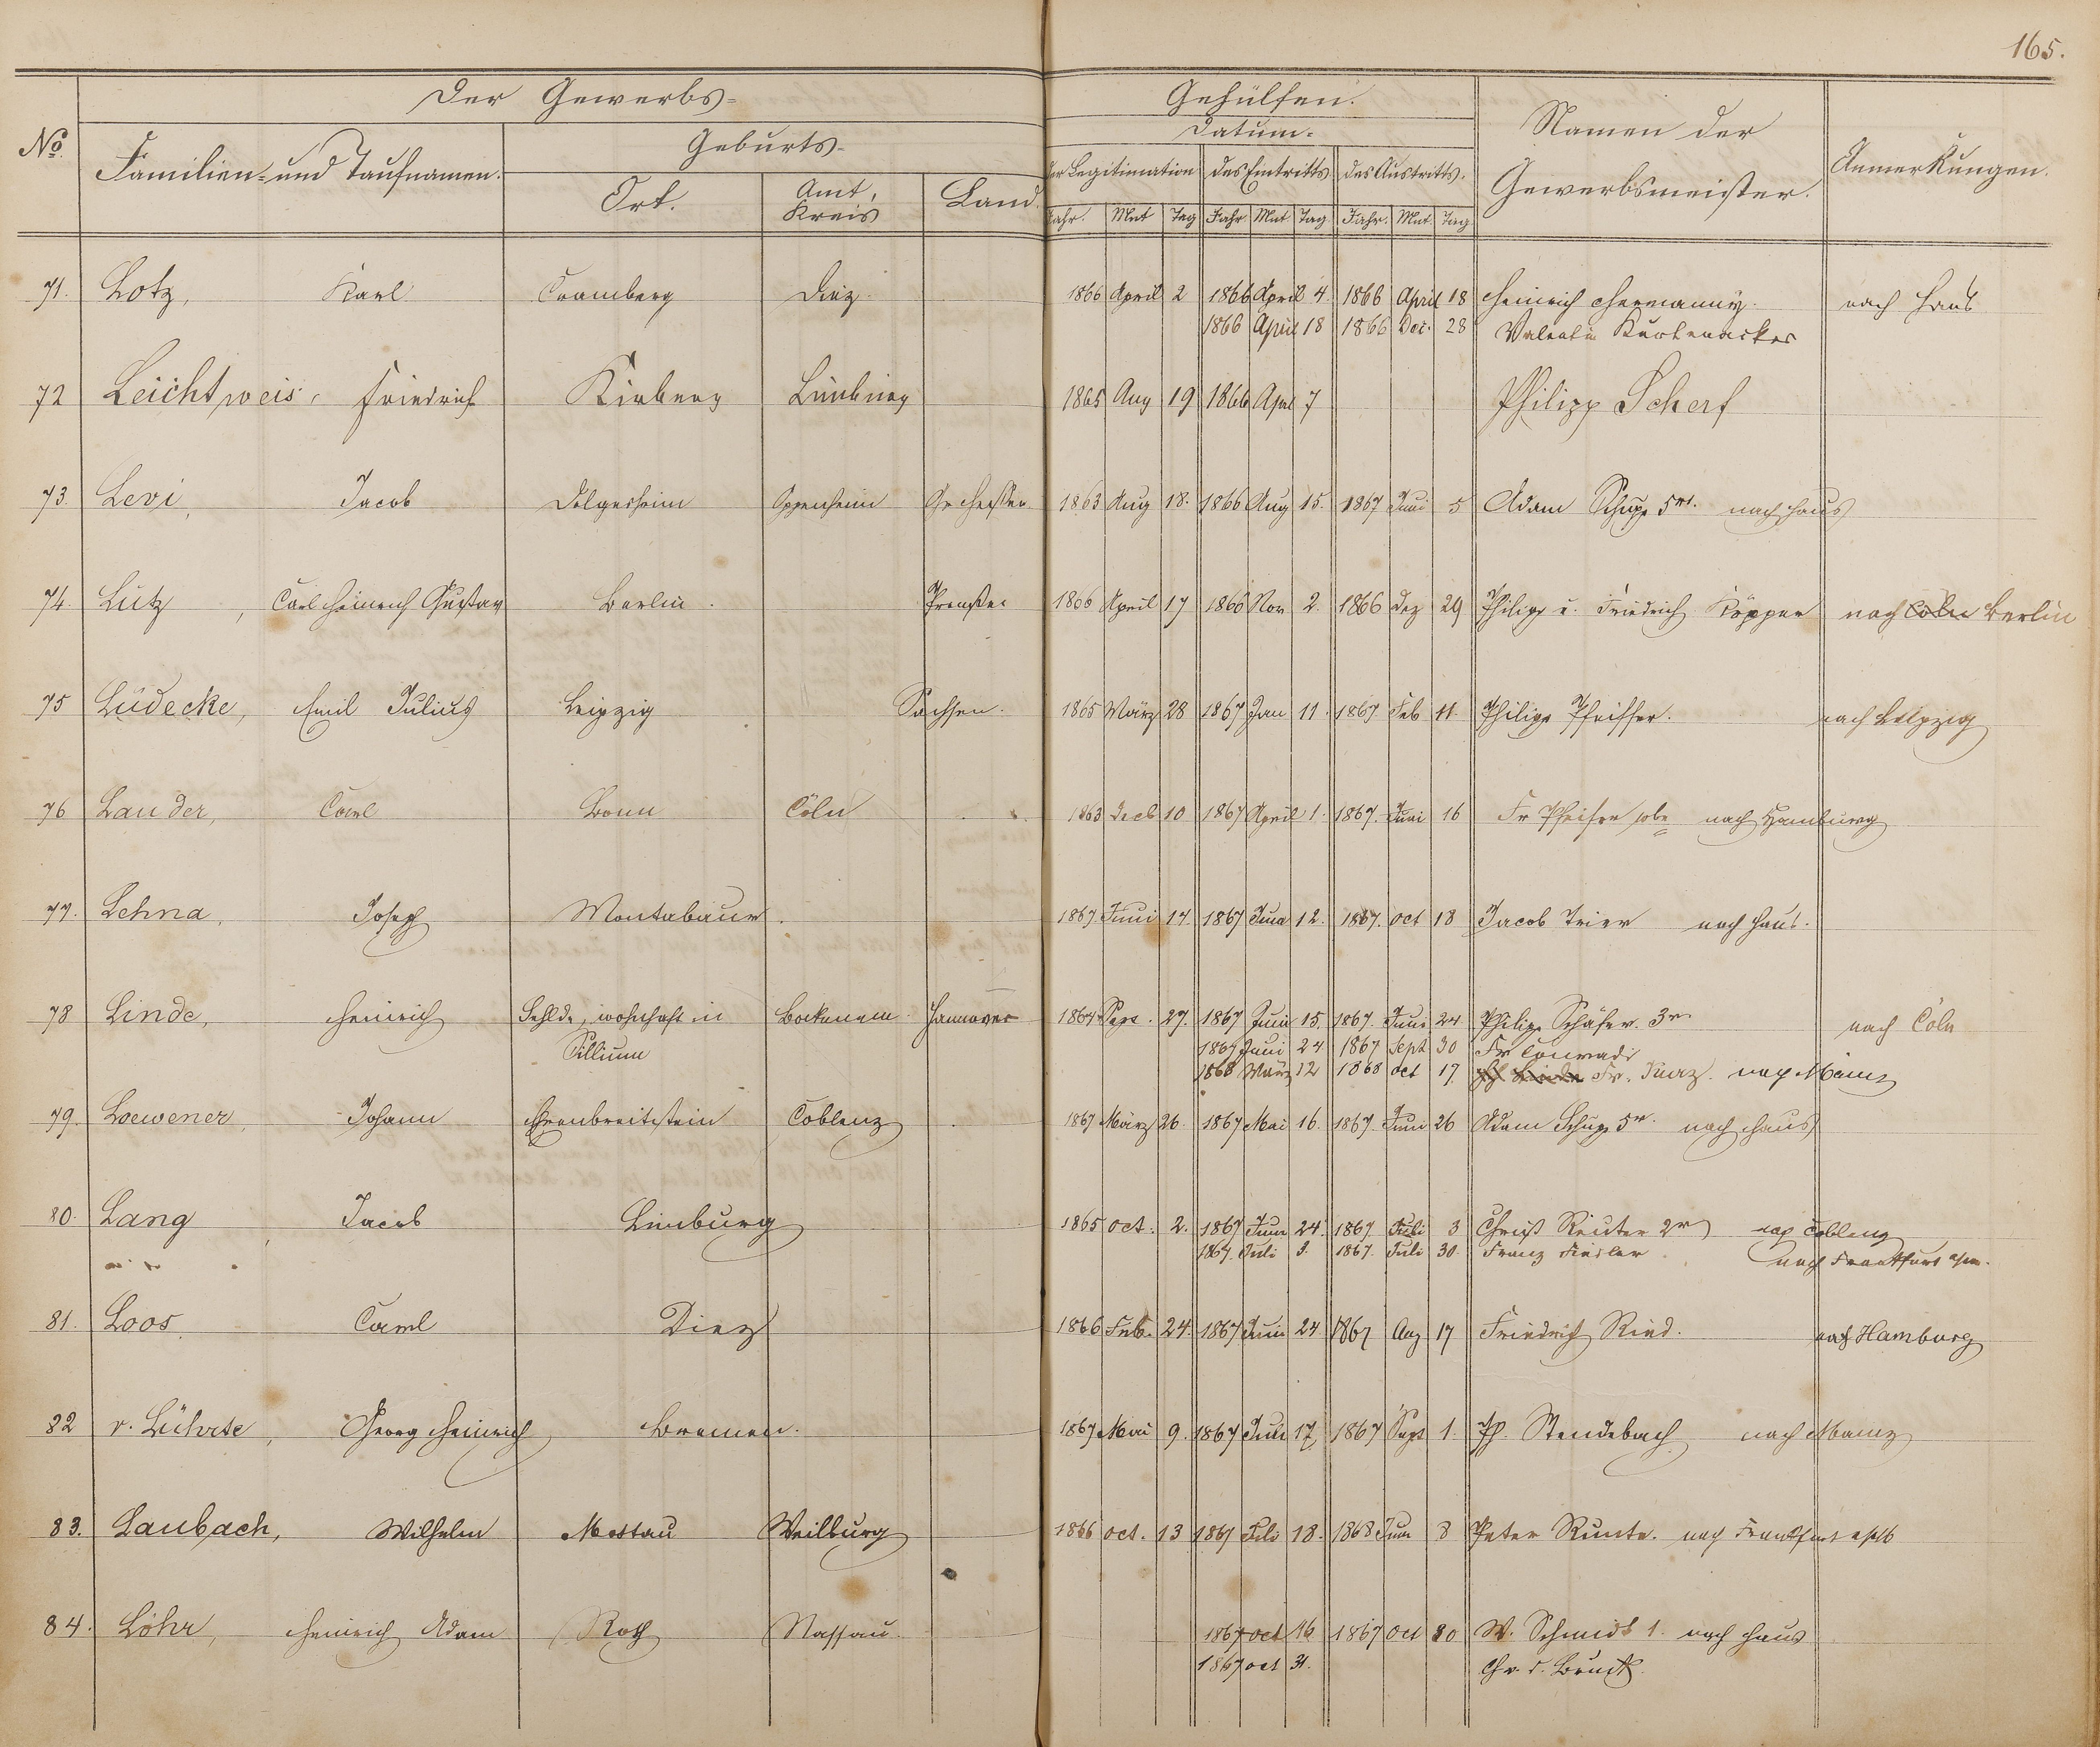 165.
Der Gewerbs-
Gehülfen.
No.
Familien- und Taufnamen.
Geburts-
Ort.
Amt, Kreis
Land.
Datum.
der Legitimation
des Eintritts
des Austritts.
Jahr. Mnt Tag Jahr Mnt Tag Jahr. Mnt. Tag
Namen der Gewerbsmeister.
Anmerkungen.
71. Lotz, Karl Cramberg Diez 1866 April 2 1866 April 4. 1866 April 18 Heinrich Hermanny. nach Haus
1866 April 18 1866 Dec. 28 Valentin Kurtenacker
72 Leichtweis, Friedrich Kirberg Limburg 1865 Aug 19 1866 Aprl 7 Philipp Scherf
73. Levi, Jacob Dolgesheim Oppenheim Gr Hessen 1863 Aug 18. 1866 Aug 15. 1867 Juni 5 Adam Schupp 5r. nach Haus
74. Lutz, Carl Heinrich Gustav Berlin. Preußen 1866 April 17 1866 Nov 2. 1866 Dez 29 Philipp u. Friedrich Köpper nach Cöln Berlin
75 Lüdecke, Emil Julius Leipzig Sachsen. 1865 März 28 1867 Jan 11. 1867 Feb 11. Philipp Pfeiffer. nach Leipzig
76 Lauder, Carl Bonn Cöln 1863 Decb 10 1867 April 1. 1867. Juni 16 Fr nach Hamburg
77. Lehna, Joseph Montabaur. 1867 Juni 14. 1867 Juni 12. 1867. oct 18 Jacob Trier nach Haus.
78 Linde, Heinrich Sehlde, wohnhaft in Bockenem Hannover 1864 Sept. 27. 1867 Juni 15. 1867. Juni 24 Philipp Schäfer 3r. nach Cöln
Sillium 1867 Juni 24 1867 Sept 30 Fr Conradi
1868 März 12 1868 oct 17. Fr. Kurz. nach Mainz
79. Loewener, Johann Ehrenbreitstein Coblenz 1867 März 26. 1867 Mai 16. 1867. Juni 26 Adam Schupp 5r. nach Haus
80. Lang, Jacob Limburg 1865 oct. 2. 1867 Juni 24. 1867. Juli 3 Christ Reuter 2r nach Coblenz
1867. Juli 3. 1867. Juli 30. Franz Fiedler nach Frankfurt a/m.
81. Loos, Carl Diez 1866 Feb. 24. 1867 Juni 24 1867 Aug 17 Friedrich Ried. nach Hamburg
82 v. Lührte, Georg Heinrich Bremen. 1867 Mai 9. 1867 Juli 17 1867 Sept 1. Ph. Stendebach nach Mainz
83. Laubach, Wilhelm Mottau Weilburg 1866 oct. 13 1867 Juli 18. 1868 Juni 8 Peter Runte. nach Frankfurt
84. Löhr, Heinrich Adam Roth Nassau. 1867 oct 16 1867 oct 30 W. Schmidt 1. nach Haus
1867 oct 31. Chr. d. Bruck.